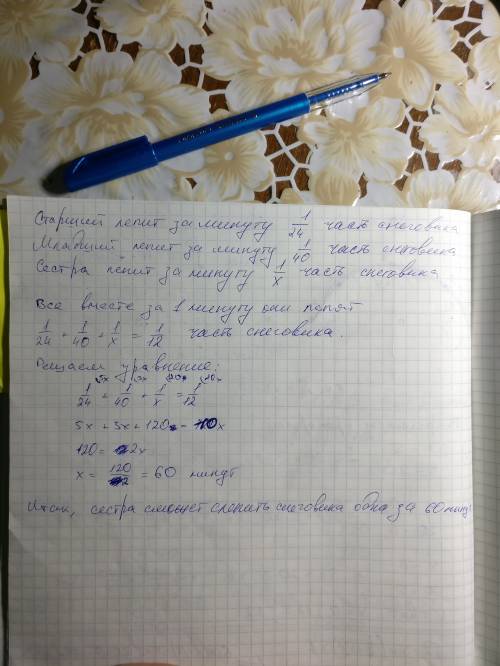 Старший лепит за минуту 1/24 часть снеговика
Младший лепит за минуту 1/40 часть снеговика
Сестра лепит за минуту 1/x часть снеговика
Все вместе за 1 минуту они лепят
1/24 + 1/40 + 1/x = 1/12 часть снеговика.
Решаем уравнение:
1/24 + 1/40 + 1/x = 1/12
5x + 3x + 120 = 10x
120 = 2x
x = 120/2 = 60 минут
Итак, сестра сможет слепить снеговика одна за 60 мину